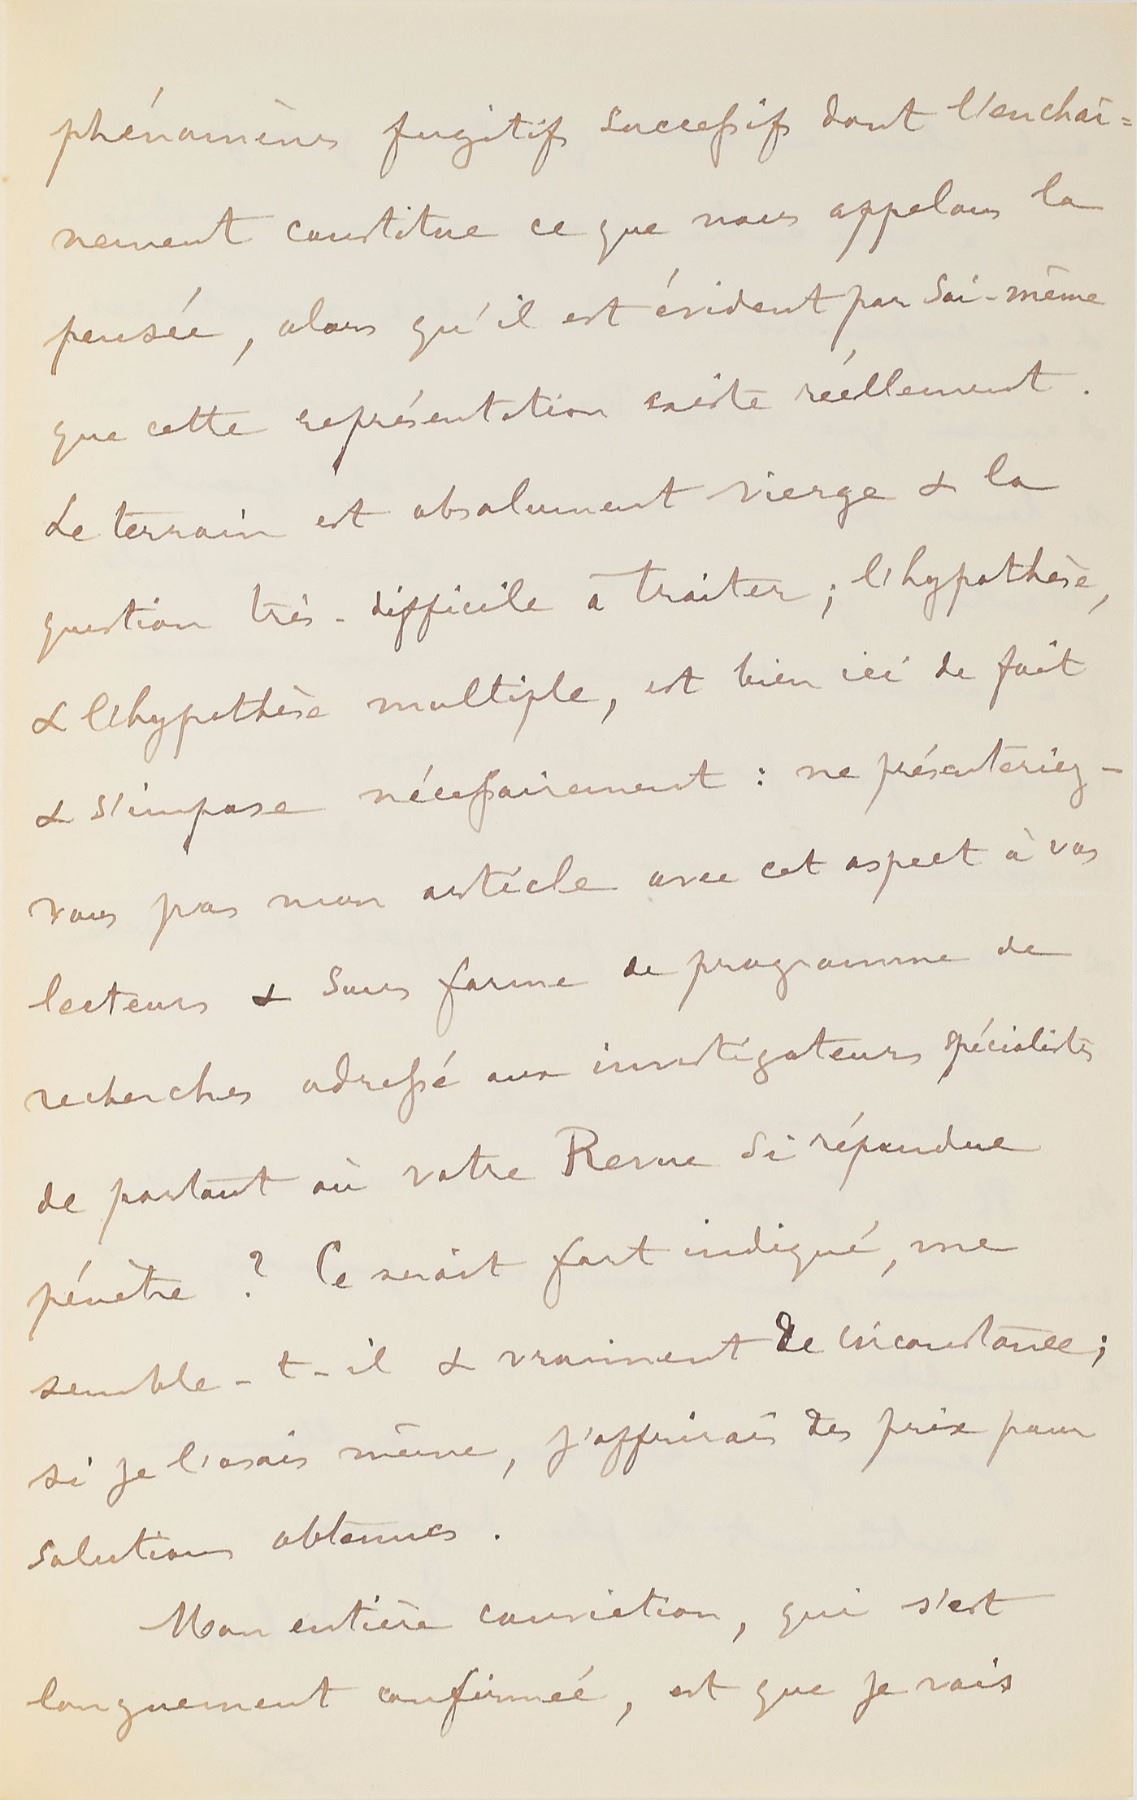 phénomènes fugitifs successifs dont l'enchaî=
nement constitue ce que nous appelons la
pensée, alors qu'il est évident par soi-même
que cette représentation existe réellement.
Le terrain est absolument vierge & la
question très-difficile à traiter; l'hypothèse,
& l'hypothèse multiple, est bien ici de fait
& s'impose nécessairement : ne présenteriez-
vous pas mon article avec cet aspect à vos
lecteurs & sous forme de programme de
recherches adressé aux investigateurs spécialistes
de partout où votre Revue si répandue
pénètre ? Ce serait fort indiqué, me
semble-t-il & vraiment de circonstance;
si je l'osais même, j'offrirais des prix pour
solutions obtenues.
Mon entière conviction, qui s'est
longuement confirmée, est que je vais